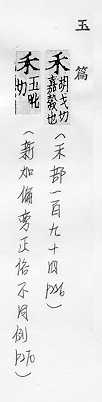 玉篇
禾 胡戈切 嘉穀也
（禾部一百九十四 p226）
禾 玉㽥切
（新加偏旁正俗不同例 p270）